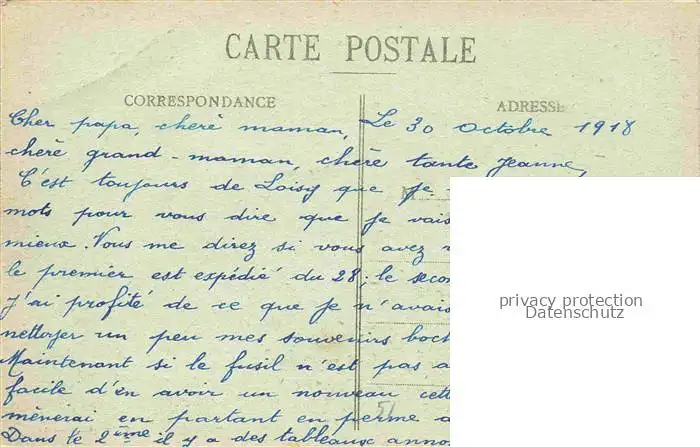 CARTE POSTALE
CORRESPONDANCE
ADRESSE
Le 30 octobre 1918
Cher papa, chère maman,
chère grand-maman, chère tante Jeanne,
C'est toujours de Loisy que je
mots pour vous dire que je vais
mieux. Vous me direz si vous avez
le premier est expédié du 28; le secon
j'ai profité de ce que je n'avais
nettoyer un peu mes souvenirs boch
Maintenant si le fusil n'est pas a
facile d'en avoir un nouveau cett
mènerai en partant en perme a
Dans le 2ème il y a des tableaux anno
privacy protection
Datenschutz